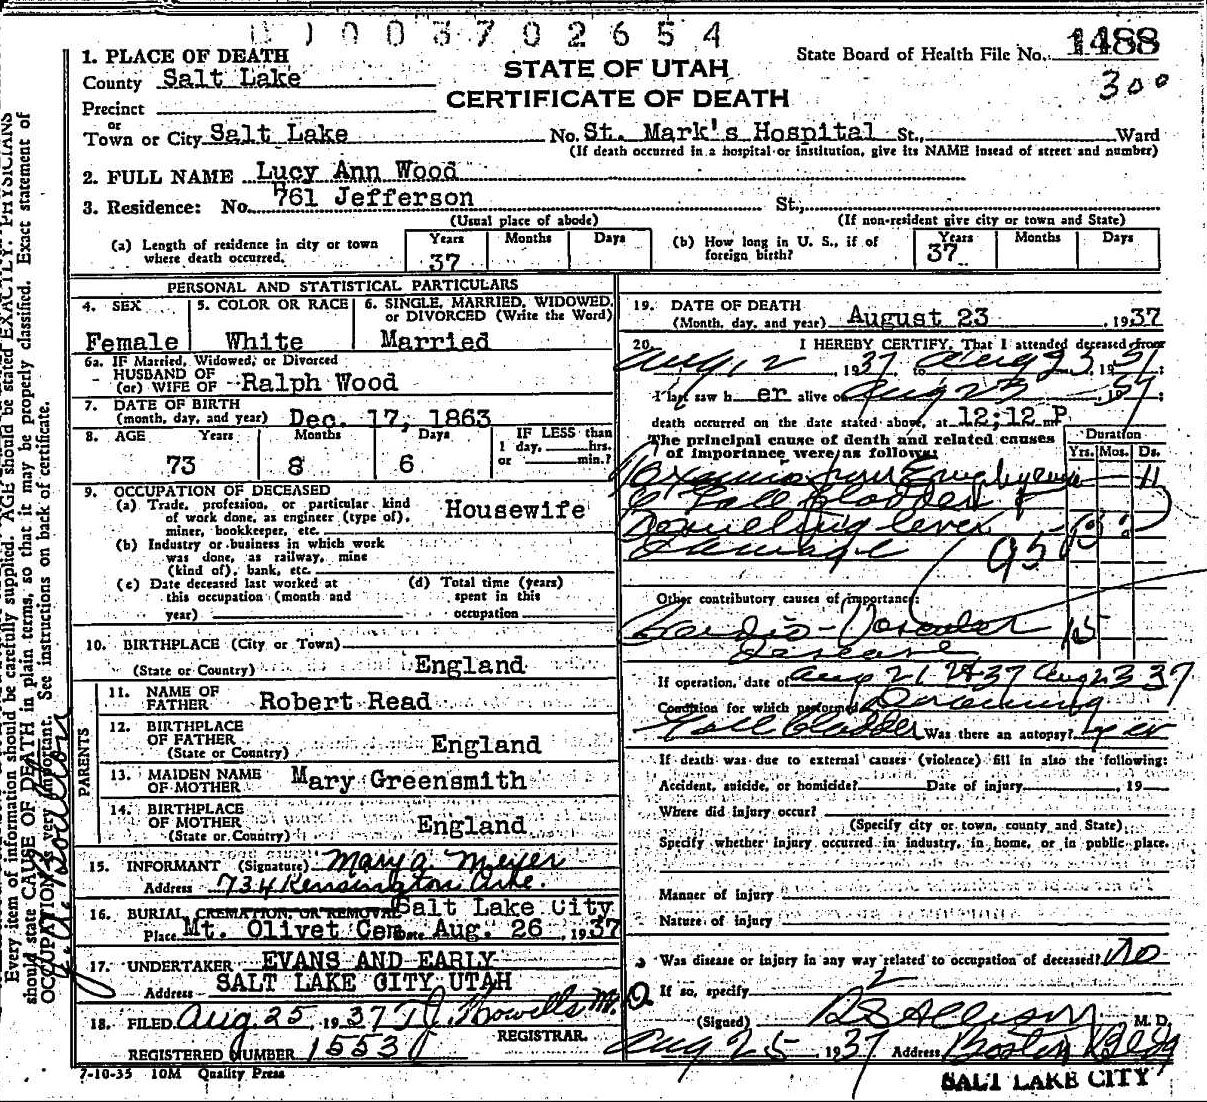 0 1 0 0 3 7 0 2 6 5 4
State Board of Health File No. 1488
300
STATE OF UTAH
CERTIFICATE OF DEATH
1. PLACE OF DEATH
County Salt Lake
Precinct
or
Town or City Salt Lake No. St. Mark's Hospital St., Ward
(If death occurred in a hospital or institution, give its NAME instead of street and number)
2. FULL NAME Lucy Ann Wood
3. Residence: No. 761 Jefferson St.,
(Usual place of abode) (If non-resident give city or town and State)
(a) Length of residence in city or town where death occurred. Years 37 Months Days
(b) How long in U. S., if of foreign birth? Years 37 Months Days
PERSONAL AND STATISTICAL PARTICULARS
4. SEX Female
5. COLOR OR RACE White
6. SINGLE, MARRIED, WIDOWED, or DIVORCED (Write the Word) Married
6a. IF Married, Widowed, or Divorced
HUSBAND OF
(or) WIFE OF Ralph Wood
7. DATE OF BIRTH
(month, day, and year) Dec. 17, 1863
8. AGE Years Months Days IF LESS than
1 day, hrs.
or min.?
73 8 6
9. OCCUPATION OF DECEASED
(a) Trade, profession, or particular kind of work done, as engineer (type of), miner, bookkeeper, etc. Housewife
(b) Industry or business in which work was done, as railway, mine (kind of), bank, etc.
(c) Date deceased last worked at this occupation (month and year)
(d) Total time (years) spent in this occupation
10. BIRTHPLACE (City or Town)
(State or Country) England
PARENTS
11. NAME OF FATHER Robert Read
12. BIRTHPLACE OF FATHER
(State or Country) England
13. MAIDEN NAME OF MOTHER Mary Greensmith
14. BIRTHPLACE OF MOTHER
(State or Country) England
15. INFORMANT (Signature) Mary A. Meyer
Address 734 Kensington Ave.
16. BURIAL, CREMATION, OR REMOVAL Salt Lake City
Place Mt. Olivet Cem Date Aug. 26, 1937
17. UNDERTAKER EVANS AND EARLY
Address SALT LAKE CITY UTAH
18. FILED Aug. 25, 1937 T. J. Howells M.D.
REGISTRAR.
REGISTERED NUMBER 1553
7-10-35 10M Quality Press
19. DATE OF DEATH
(Month, day, and year) August 23, 1937
20. I HEREBY CERTIFY, That I attended deceased from
Aug 12 1937 to Aug 23, 1937
I last saw her alive on Aug 23 1937;
death occurred on the date stated above, at 12;12 P m
The principal cause of death and related causes of importance were as follows:
Duration
Yrs. Mos. Ds.
from 11
Gall bladder
liver
damage 95
Other contributory causes of importance:
Cardio-Vascular 15
disease
If operation, date of Aug 21 1937 Aug 23 37
Condition for which performed Draining
Gall bladder Was there an autopsy? yes
If death was due to external causes (violence) fill in also the following:
Accident, suicide, or homicide? Date of injury , 19
Where did injury occur?
(Specify city or town, county and State)
Specify whether injury occurred in industry, in home, or in public place.
Manner of injury
Nature of injury
Was disease or injury in any way related to occupation of deceased? No
If so, specify
(Signed) Allison M. D.
Aug 25, 1937 Address Boston Bldg
SALT LAKE CITY
Every item of information should be carefully supplied. AGE should be stated EXACTLY. PHYSICIANS
should state CAUSE OF DEATH in plain terms, so that it may be properly classified. Exact statement of
OCCUPATION is very important. See instructions on back of certificate.